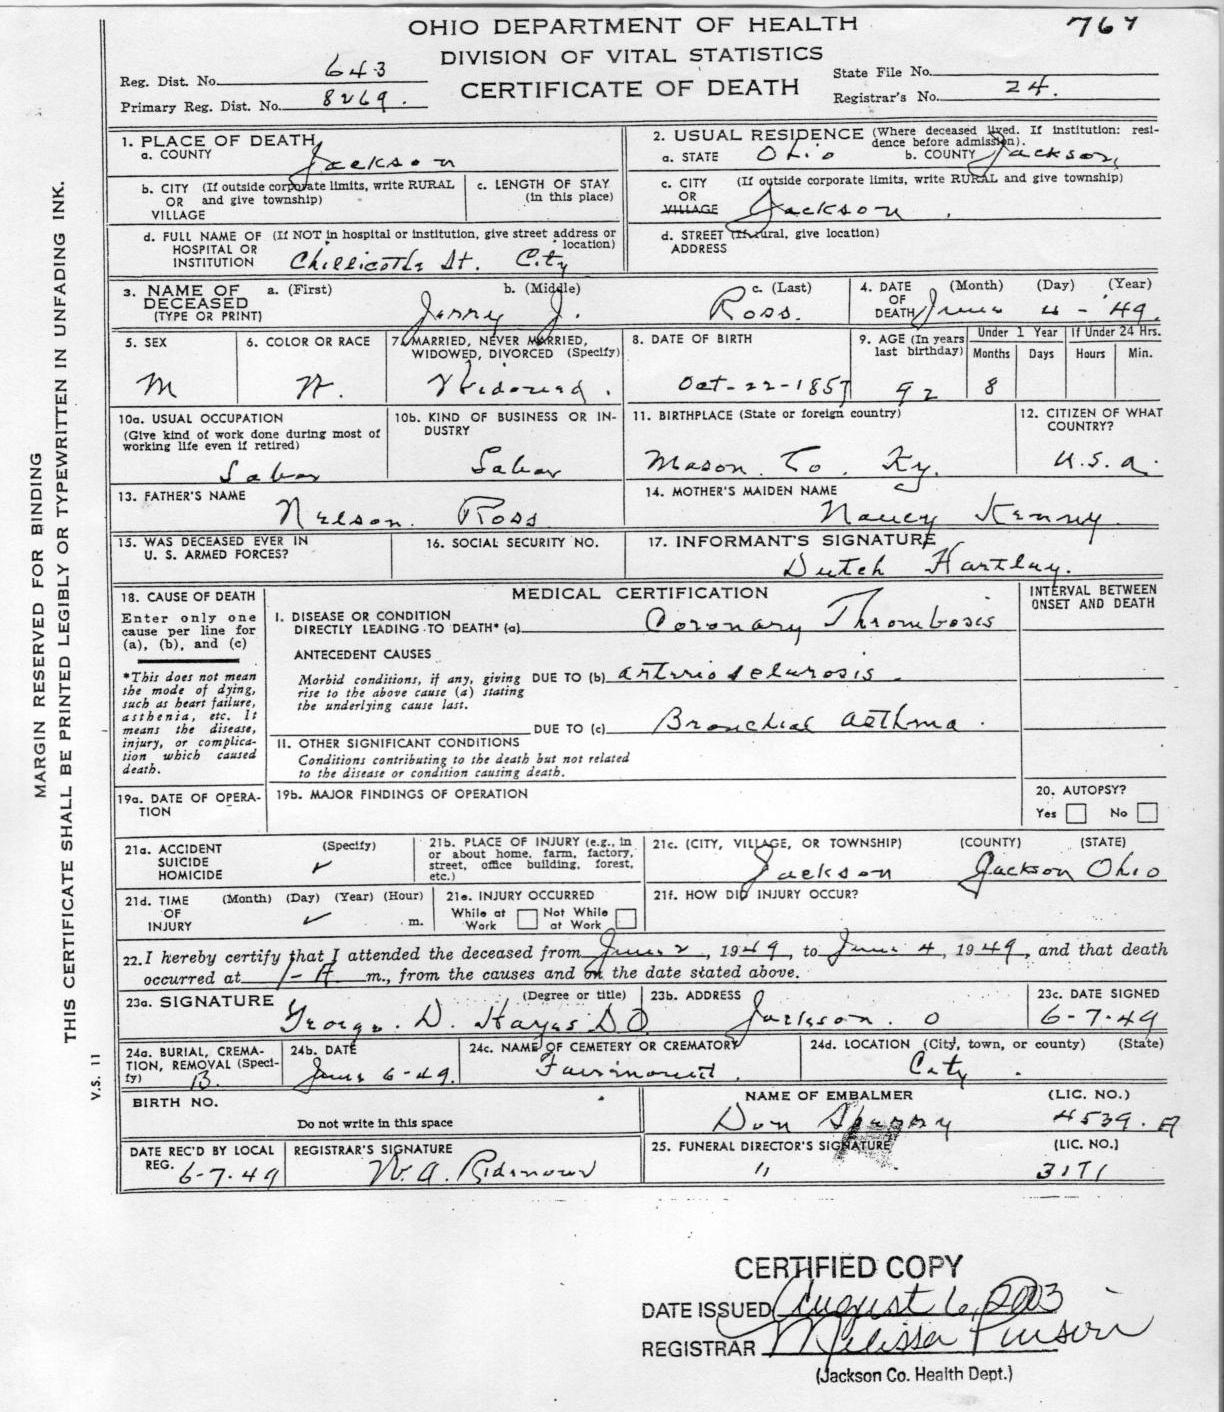 OHIO DEPARTMENT OF HEALTH
767
DIVISION OF VITAL STATISTICS
CERTIFICATE OF DEATH
Reg. Dist. No. 643
Primary Reg. Dist. No. 8269.
State File No.
Registrar's No. 24.
MARGIN RESERVED FOR BINDING
THIS CERTIFICATE SHALL BE PRINTED LEGIBLY OR TYPEWRITTEN IN UNFADING INK.
V.S. 11
1. PLACE OF DEATH
a. COUNTY Jackson
b. CITY (If outside corporate limits, write RURAL
OR and give township)
VILLAGE
c. LENGTH OF STAY
(in this place)
d. FULL NAME OF (If NOT in hospital or institution, give street address or
HOSPITAL OR location)
INSTITUTION Chillicothe St. City
2. USUAL RESIDENCE (Where deceased lived. If institution: resi-
dence before admission).
a. STATE Ohio b. COUNTY Jackson
c. CITY (If outside corporate limits, write RURAL and give township)
OR
VILLAGE Jackson
d. STREET (If rural, give location)
ADDRESS
3. NAME OF a. (First) b. (Middle) c. (Last)
DECEASED
(TYPE OR PRINT) Jerry J. Ross.
4. DATE (Month) (Day) (Year)
OF
DEATH June 4 - '49.
5. SEX
M
6. COLOR OR RACE
7. MARRIED, NEVER MARRIED,
WIDOWED, DIVORCED (Specify)
Widowed.
8. DATE OF BIRTH
Oct-22-1857
9. AGE (In years
last birthday)
92
Under 1 Year
Months Days
8
If Under 24 Hrs.
Hours Min.
10a. USUAL OCCUPATION
(Give kind of work done during most of
working life even if retired)
Labor
10b. KIND OF BUSINESS OR IN-
DUSTRY
Labor
11. BIRTHPLACE (State or foreign country)
Mason. Co. Ky.
12. CITIZEN OF WHAT
COUNTRY?
U.S.A.
13. FATHER'S NAME
Nelson. Ross
14. MOTHER'S MAIDEN NAME
Nancy Kenny.
15. WAS DECEASED EVER IN
U. S. ARMED FORCES?
16. SOCIAL SECURITY NO.
17. INFORMANT'S SIGNATURE
Dutch Hartley.
18. CAUSE OF DEATH
Enter only one
cause per line for
(a), (b), and (c)
*This does not mean
the mode of dying,
such as heart failure,
asthenia, etc. It
means the disease,
injury, or complica-
tion which caused
death.
MEDICAL CERTIFICATION
INTERVAL BETWEEN
ONSET AND DEATH
I. DISEASE OR CONDITION
DIRECTLY LEADING TO DEATH* (a) Coronary Thrombosis
ANTECEDENT CAUSES
Morbid conditions, if any, giving
rise to the above cause (a) stating
the underlying cause last.
DUE TO (b) arteriosclerosis.
DUE TO (c) Bronchial asthma.
II. OTHER SIGNIFICANT CONDITIONS
Conditions contributing to the death but not related
to the disease or condition causing death.
19a. DATE OF OPERA-
TION
19b. MAJOR FINDINGS OF OPERATION
20. AUTOPSY?
Yes No
21a. ACCIDENT (Specify)
SUICIDE
HOMICIDE ✓
21b. PLACE OF INJURY (e.g., in
or about home, farm, factory,
street, office building, forest,
etc.)
21c. (CITY, VILLAGE, OR TOWNSHIP) (COUNTY) (STATE)
Jackson Jackson Ohio
21d. TIME (Month) (Day) (Year) (Hour)
OF
INJURY ✓ m.
21e. INJURY OCCURRED
While at Work
Not While at Work
21f. HOW DID INJURY OCCUR?
22. I hereby certify that I attended the deceased from June 2, 1949, to June 4, 1949, and that death
occurred at 1-A m., from the causes and on the date stated above.
23a. SIGNATURE (Degree or title)
George. D. Hayes D.O.
23b. ADDRESS
Jackson. O
23c. DATE SIGNED
6-7-49
24a. BURIAL, CREMA-
TION, REMOVAL (Speci-
fy) B.
24b. DATE
June 6-49.
24c. NAME OF CEMETERY OR CREMATORY
Fairmount.
24d. LOCATION (City, town, or county) (State)
City.
BIRTH NO.
Do not write in this space
NAME OF EMBALMER (LIC. NO.)
Don Sparry 4539. A
DATE REC'D BY LOCAL
REG. 6-7-49
REGISTRAR'S SIGNATURE
W. A. Ridenour
25. FUNERAL DIRECTOR'S SIGNATURE (LIC. NO.)
" 3171
CERTIFIED COPY
DATE ISSUED August 6, 2003
REGISTRAR Melissa
(Jackson Co. Health Dept.)